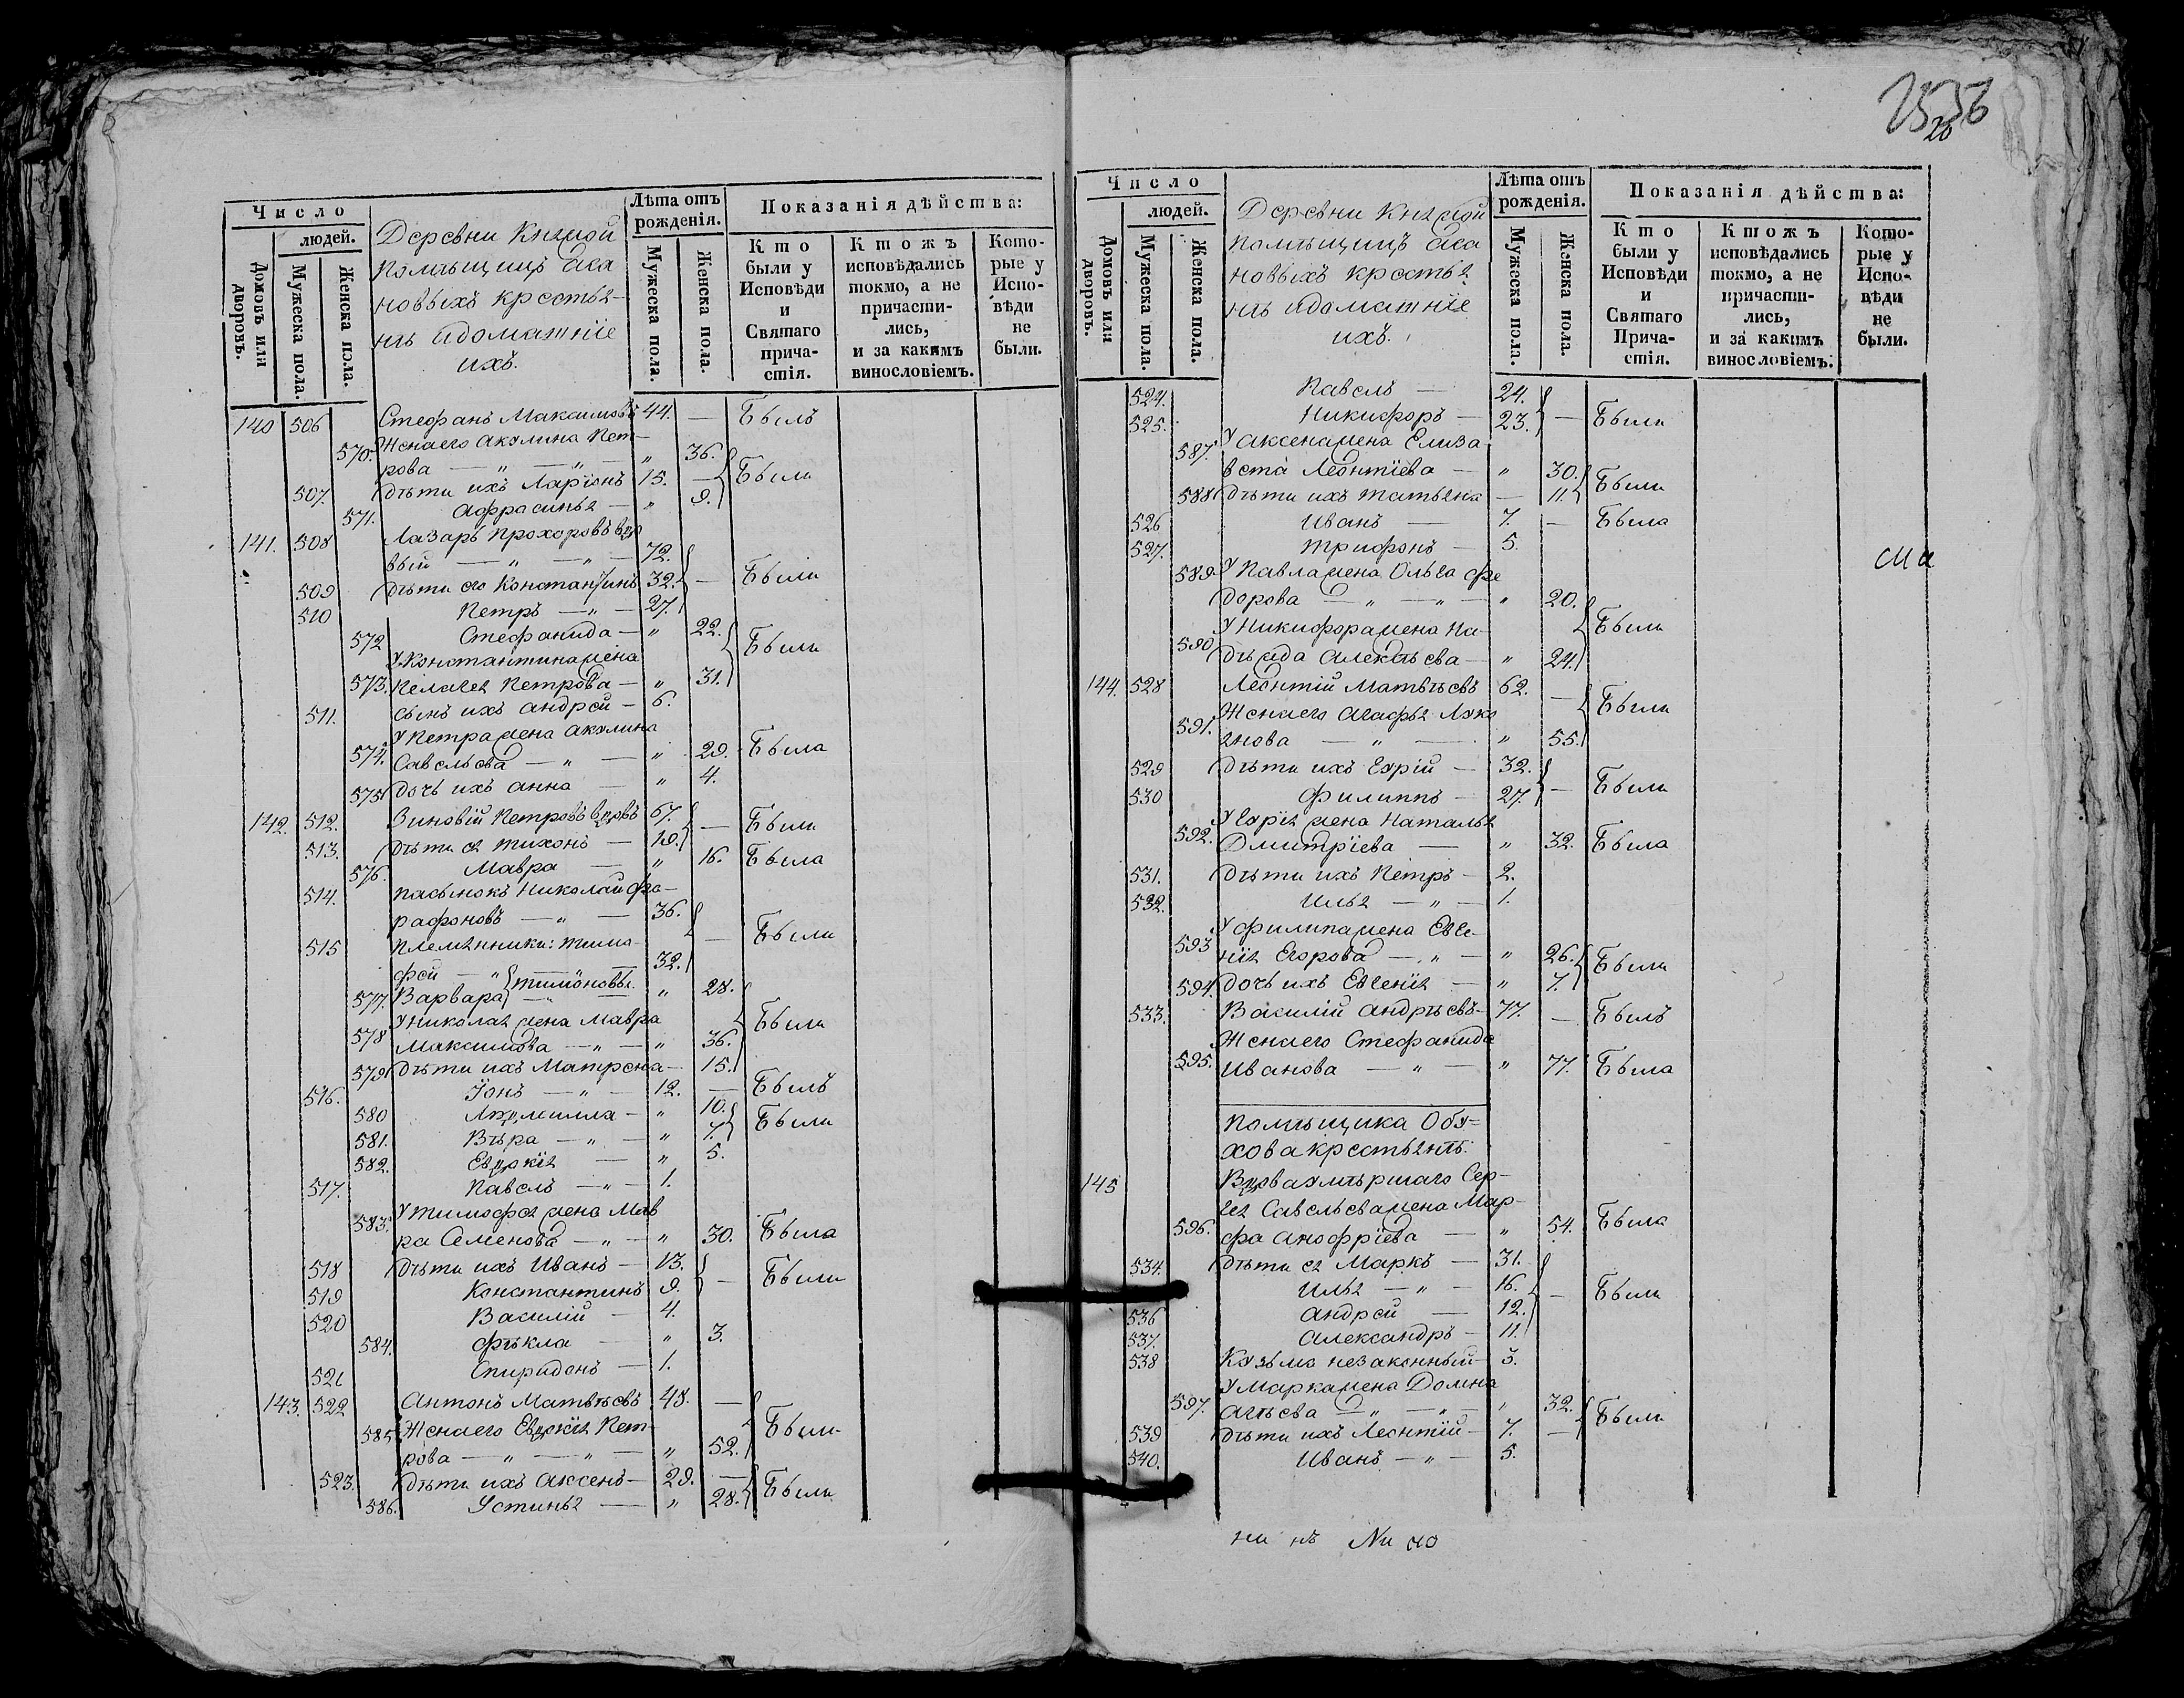 Число
людей.
Домовъ или дворовъ.
Мужеска пола.
Женска пола.
Деревни Княжой
помѣщицъ Аса
новыхъ крестья-
нѣ идоматніе
ихъ.
Лѣта отъ рожденія.
Мужеска пола.
Женска пола.
Показанія дѣйства:
Кто были у Исповѣди и Святаго причастія.
Ктожъ исповѣдались токмо, а не причастились, и за какимъ винословіемъ.
Которые у Исповѣди не были.
140 506 Стефанъ Максимовъ 44. — Былъ
570. Женаего Акулина Пет-
рова — " — " — " 36.
507. дѣти ихъ Ларіонъ 15. — Были
571. Афросинья — " 9.
141. 508 Лазарь Прохоровъ вдо
вый — " — " — 72.
509 дѣти его Константинъ 32. — Были
510 Петръ — " — 27.
572 Стефанида — " 22.
УКонстантинажена Были
573. Пелагея Петрова — " 31.
511. сынъ ихъ Андрей — 6.
УПетражена Акулина
574. Савельева — " — " 29. Была
575 дочь ихъ Анна — " 4.
142. 512. Зиновій Петровъ вдовъ 67. — Были
513. дѣти ея Тихонъ — 19.
576. Мавра — " 16. Была
514. пасынокъ Николай Фа-
рафоновъ — " — 36.
515 племянники: Тимо- — Были
фей — " Тимоновы. 32.
577. Варвара — " 28.
УНиколая жена Мавра
578 Максимова — " — " 36. Были
579 дѣти ихъ Матрена — 15.
516. Іонъ — " — 12. — Былъ
580 Людмилла — " 10.
581. Вѣра — " — " 7. Были
582. Евдокія — " 5.
517. Павелъ — " — 1.
УТимофея жена Мав
583. ра Семенова — " — " 30. Была
518 дѣти ихъ Иванъ — 13.
519 Константинъ 9. — Были
520 Василій — 4.
584. Фѣкла — " 3.
521 Спиридонъ — 1.
143. 522 Антонъ Матвѣевъ 48. —
585 Женаего Евдокія Пет- Были
рова — " — " — " 52.
523. дѣти ихъ Аксенъ — 29. —
586. Устинья — " 28. Были
Число
людей.
Домовъ или дворовъ.
Мужеска пола.
Женска пола.
Деревни Княжой
помѣщицъ Аса
новыхъ крестья
нѣ идоматніе
ихъ.
Лѣта отъ рожденія.
Мужеска пола.
Женска пола.
Показанія дѣйства:
Кто были у Исповѣди и Святаго Причастія.
Ктожъ исповѣдались токмо, а не причастились, и за какимъ винословіемъ.
Которые у Исповѣди не были.
524. Павелъ — 24.
525. Никифоръ — 23. — Были
УАксенажена Елиза
587. вета Леонтіева — " 30.
588 дѣти ихъ Татьяна — 11. Были
526 Иванъ — 7. — Была
527. Трифонъ — 5.
589 УПавлажена Ольга Фе
дорова — " — " — " 20.
УНикифоражена На- Были
590 дѣжда Алексѣева — " 24.
144. 528 Леонтій Матвѣевъ 62. —
Женаего Агафья Лукь Были
591. янова — " — " 55.
529 дѣти ихъ Еврій — 32.
530 Филиппъ — 27. — Были
УЕврія жена Наталья
592. Дмитріева — " 32. Была
531. дѣти ихъ Петръ — 2.
532. Илья — " — 1.
УФилипажена Евге-
593 нія Егорова — " — " 26. Были
594. дочь ихъ Евгенія — " 7.
533. Василій Андрѣевъ — 77. — Былъ
Женаего Стефанида
595. Иванова — " — " 77. Была
Помѣщика Обу-
хова крестьянѣ:
145 Вдоваумѣршаго Сер-
гея Савельеважена Мар-
596. фа Анофріева — " 54. Была
534. дѣти ея Маркъ — 31.
Илья — " — 16. — Были
536 Андрей — 12.
537. Александръ — 11.
538 Кузьма незаконный — 3.
УМаркажена Домна
597. Агѣева — " — " — " 32.
539 дѣти ихъ Леонтій — 7. — Были
540. Иванъ — " — 5.